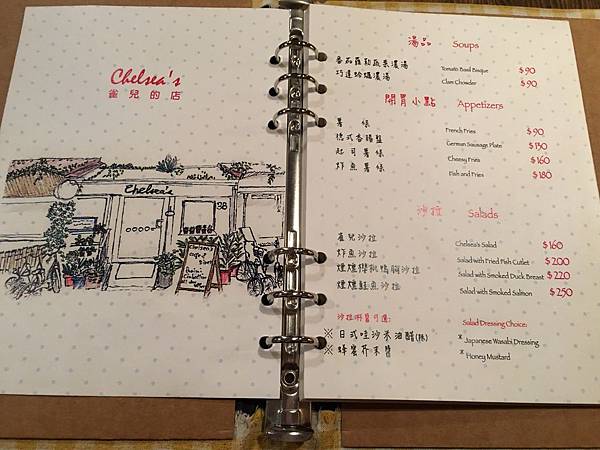 Chelsea's
雀兒的店
Chelsea's
98
湯品 Soups
番茄羅勒蔬菜濃湯 Tomato Basil Bisque $90
巧達蛤蠣濃湯 Clam Chowder $90
開胃小點 Appetizers
薯條 French Fries $90
德式香腸盤 German Sausage Plate $130
起司薯條 Cheesy Fries $160
炸魚薯條 Fish and Fries $180
沙拉 Salads
雀兒沙拉 Chelsea's Salad $160
炸魚沙拉 Salad with Fried Fish Cutlet $200
煙燻櫻桃鴨胸沙拉 Salad with Smoked Duck Breast $220
煙燻鮭魚沙拉 Salad with Smoked Salmon $250
沙拉淋醬可選: Salad Dressing Choice:
※日式哇沙米油醋(辣) * Japanese Wasabi Dressing
※蜂蜜芥末醬 * Honey Mustard